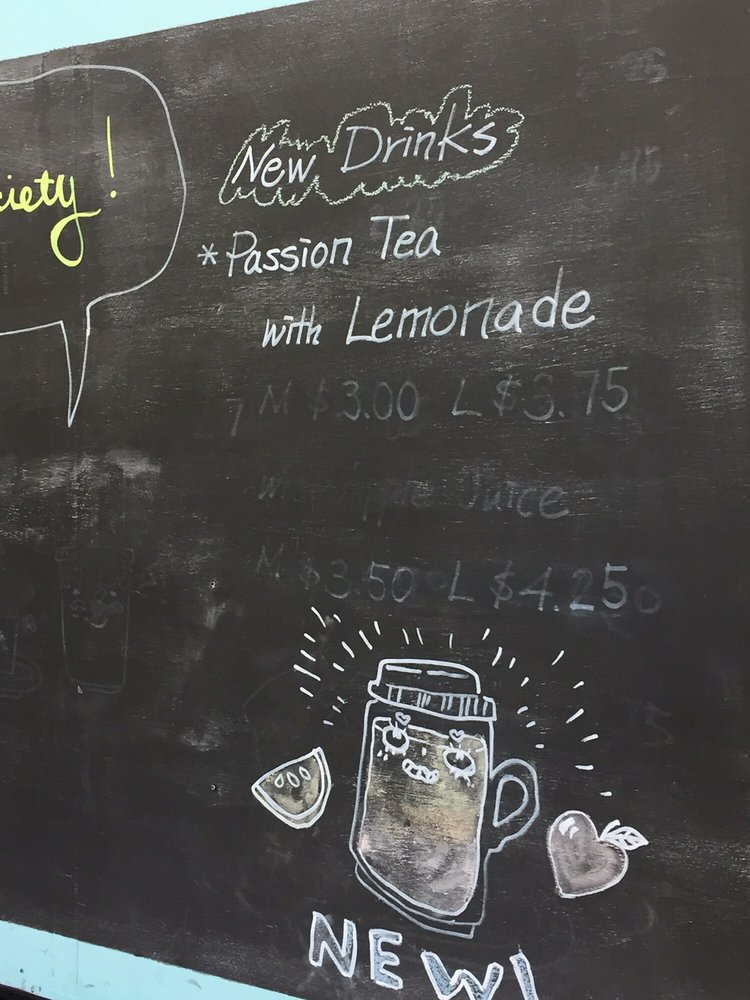 ciety!
New Drinks
*Passion Tea
with Lemonade
M $3.00 L $3.75
Juice
M $3.50 L $4.25
NEW!